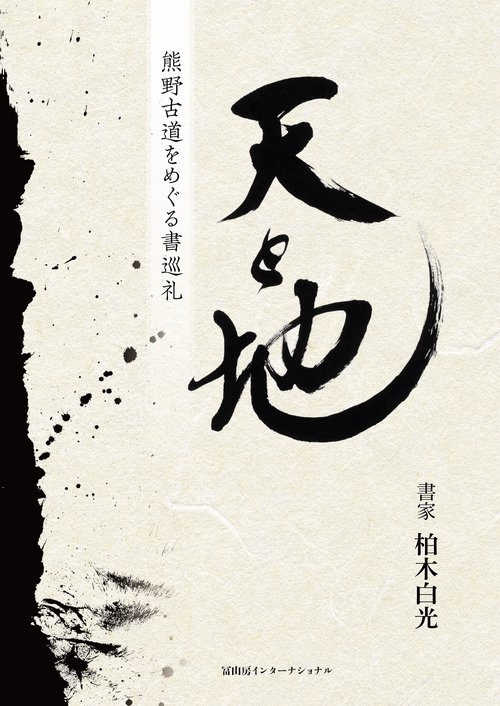 天と地
熊野古道をめぐる書巡礼
書家 柏木白光
冨山房インターナショナル